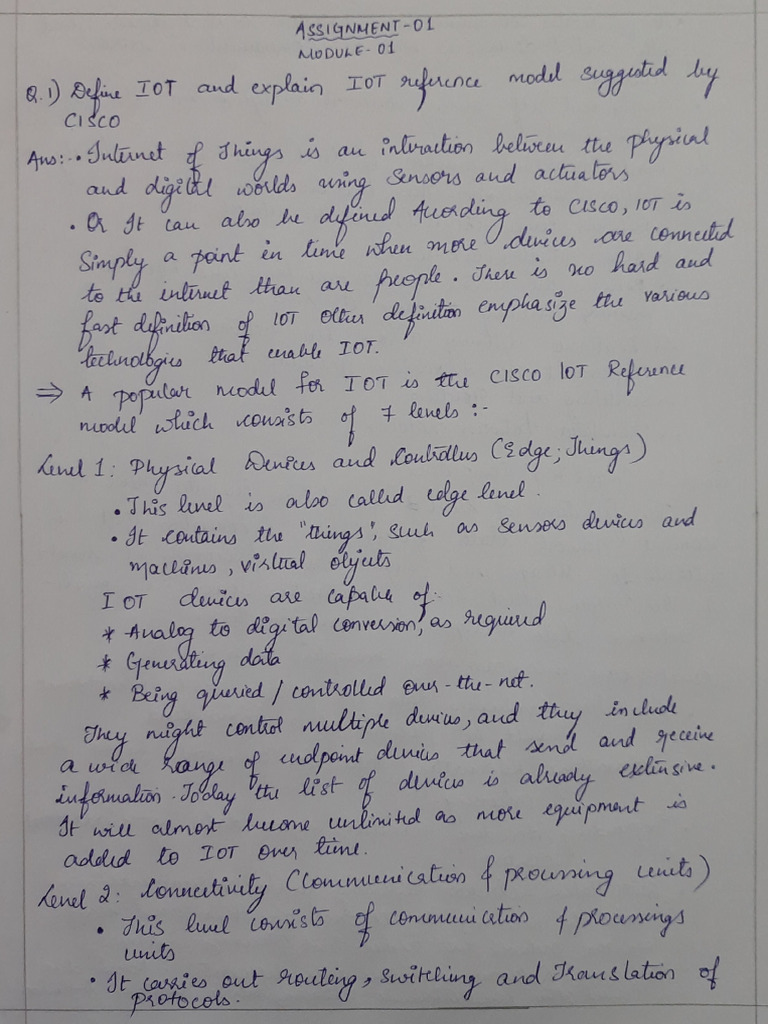 ASSIGNMENT-01
MODULE-01
Q.1) Define IOT and explain IOT reference model suggested by
CISCO
Ans:- • Internet of Things is an interaction between the physical
and digital worlds using sensors and actuators
• Or It can also be defined According to CISCO, IOT is
Simply a point in time when more devices are connected
to the internet than are people. There is no hard and
fast definition of IOT Other definition emphasize the various
technologies that enable IOT.
⇒ A popular model for IOT is the CISCO IOT Reference
model which consists of 7 levels :-
Level 1: Physical Devices and Controllers (Edge; Things)
• This level is also called edge level.
• It contains the "things", such as sensors devices and
machines, virtual objects
IOT devices are capable of:-
* Analog to digital conversion, as required
* Generating data
* Being queried / controlled over-the-net.
They might control multiple devices, and they include
a wide range of endpoint devices that send and receive
information. Today the list of devices is already extensive.
It will almost become unlimited as more equipment is
added to IOT over time.
Level 2: Connectivity (Communication & processing units)
• This level consists of communication & processings
units
• It carries out routing, switching and Translation of
protocols.